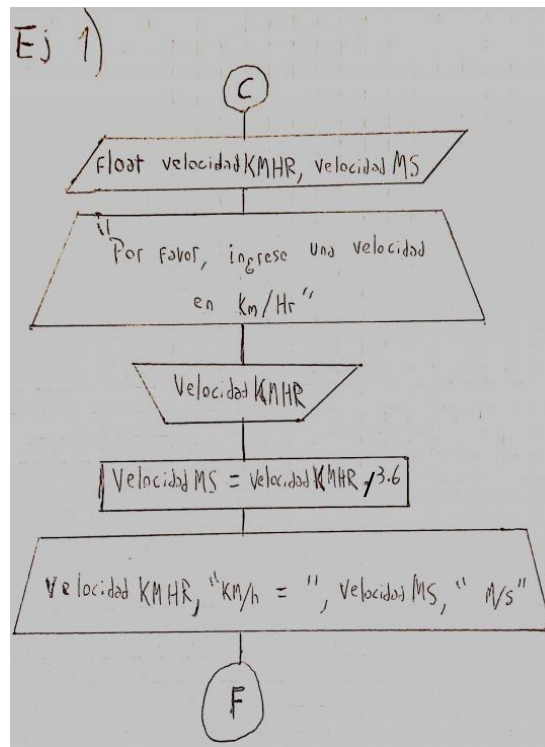 Ej 1)
C
Float velocidadKMHR, velocidad MS
"Por favor, ingrese una velocidad
en Km/Hr"
VelocidadKMHR
VelocidadMS = VelocidadKMHR /3.6
Velocidad KMHR, "KM/h = ", Velocidad MS, " M/s"
F